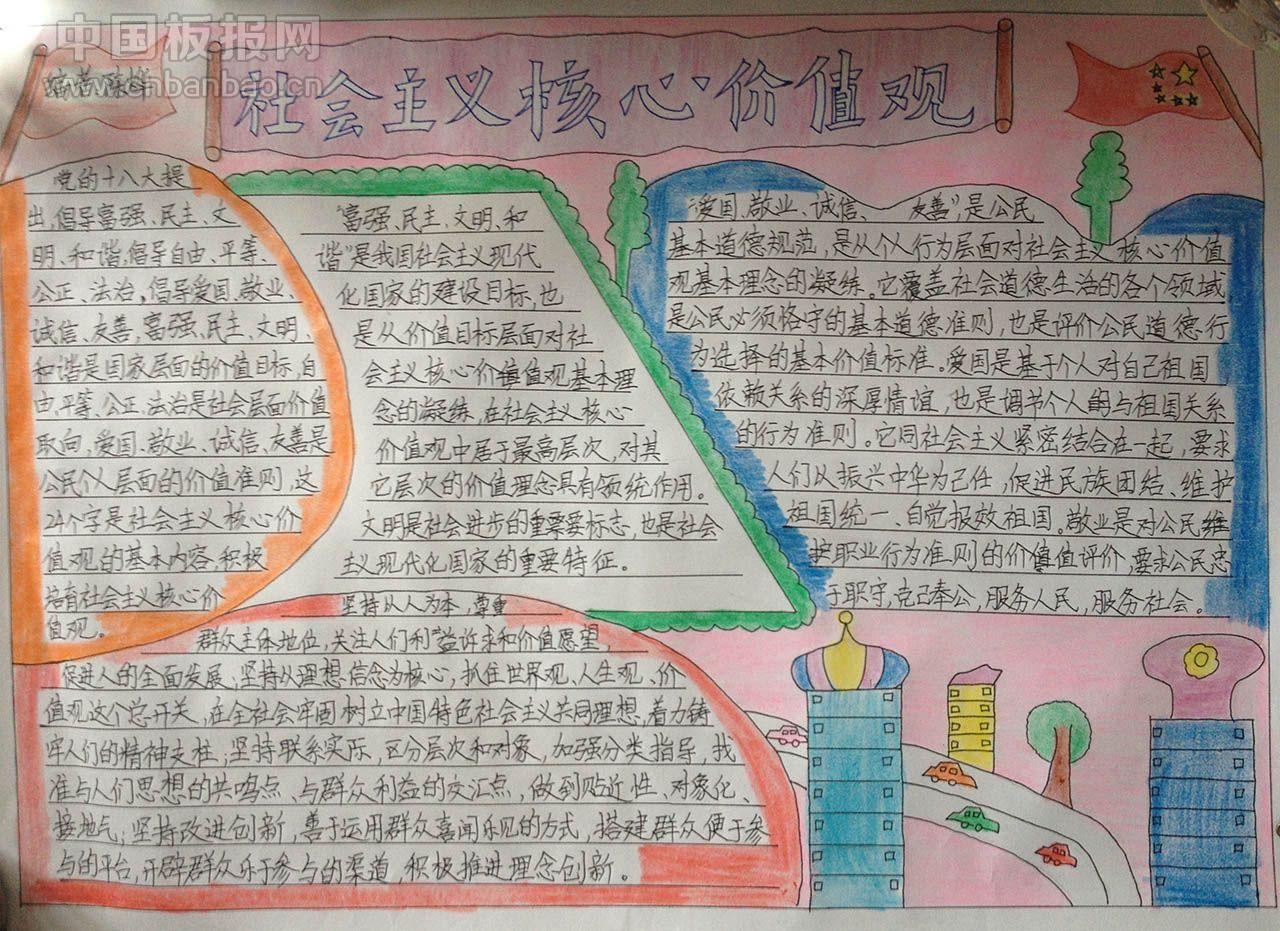 中国板报网
www.cnbanbao.cn
社会主义核心价值观
党的十八大提
出,倡导富强、民主、文
明、和谐,倡导自由、平等、
公正、法治,倡导爱国、敬业、
诚信、友善,富强、民主、文明、
和谐是国家层面的价值目标,自
由、平等、公正、法治是社会层面价值
取向,爱国、敬业、诚信、友善是
公民个人层面的价值准则,这
24个字是社会主义核心价
值观的基本内容,积极
培育社会主义核心价
值观。
“富强、民主、文明、和
谐”是我国社会主义现代
化国家的建设目标,也
是从价值目标层面对社
会主义核心价值观基本理
念的凝练,在社会主义核心
价值观中居于最高层次,对其
它层次的价值理念具有领统作用。
文明是社会进步的重要标志,也是社会
主义现代化国家的重要特征。
“爱国、敬业、诚信、友善”,是公民
基本道德规范,是从个人行为层面对社会主义核心价值
观基本理念的凝练。它覆盖社会道德生活的各个领域
是公民必须恪守的基本道德准则,也是评价公民道德行
为选择的基本价值标准。爱国是基于个人对自己祖国
依赖关系的深厚情谊,也是调节个人与祖国关系
的行为准则。它同社会主义紧密结合在一起,要求
人们以振兴中华为己任,促进民族团结、维护
祖国统一、自觉报效祖国。敬业是对公民
职业行为准则的价值评价,要求公民忠
于职守,克己奉公,服务人民,服务社会。
坚持以人为本,尊重
群众主体地位,关注人们利益许求和价值愿望,
促进人的全面发展;坚持以理想信念为核心,抓住世界观、人生观、价
值观这个总开关,在全社会牢固树立中国特色社会主义共同理想,着力铸
牢人们的精神支柱;坚持联系实际,区分层次和对象,加强分类指导,找
准与人们思想的共鸣点、与群众利益的交汇点,做到贴近性、对象化、
接地气;坚持改进创新,善于运用群众喜闻乐见的方式,搭建群众便于参
与的平台,开辟群众乐于参与的渠道,积极推进理念创新。